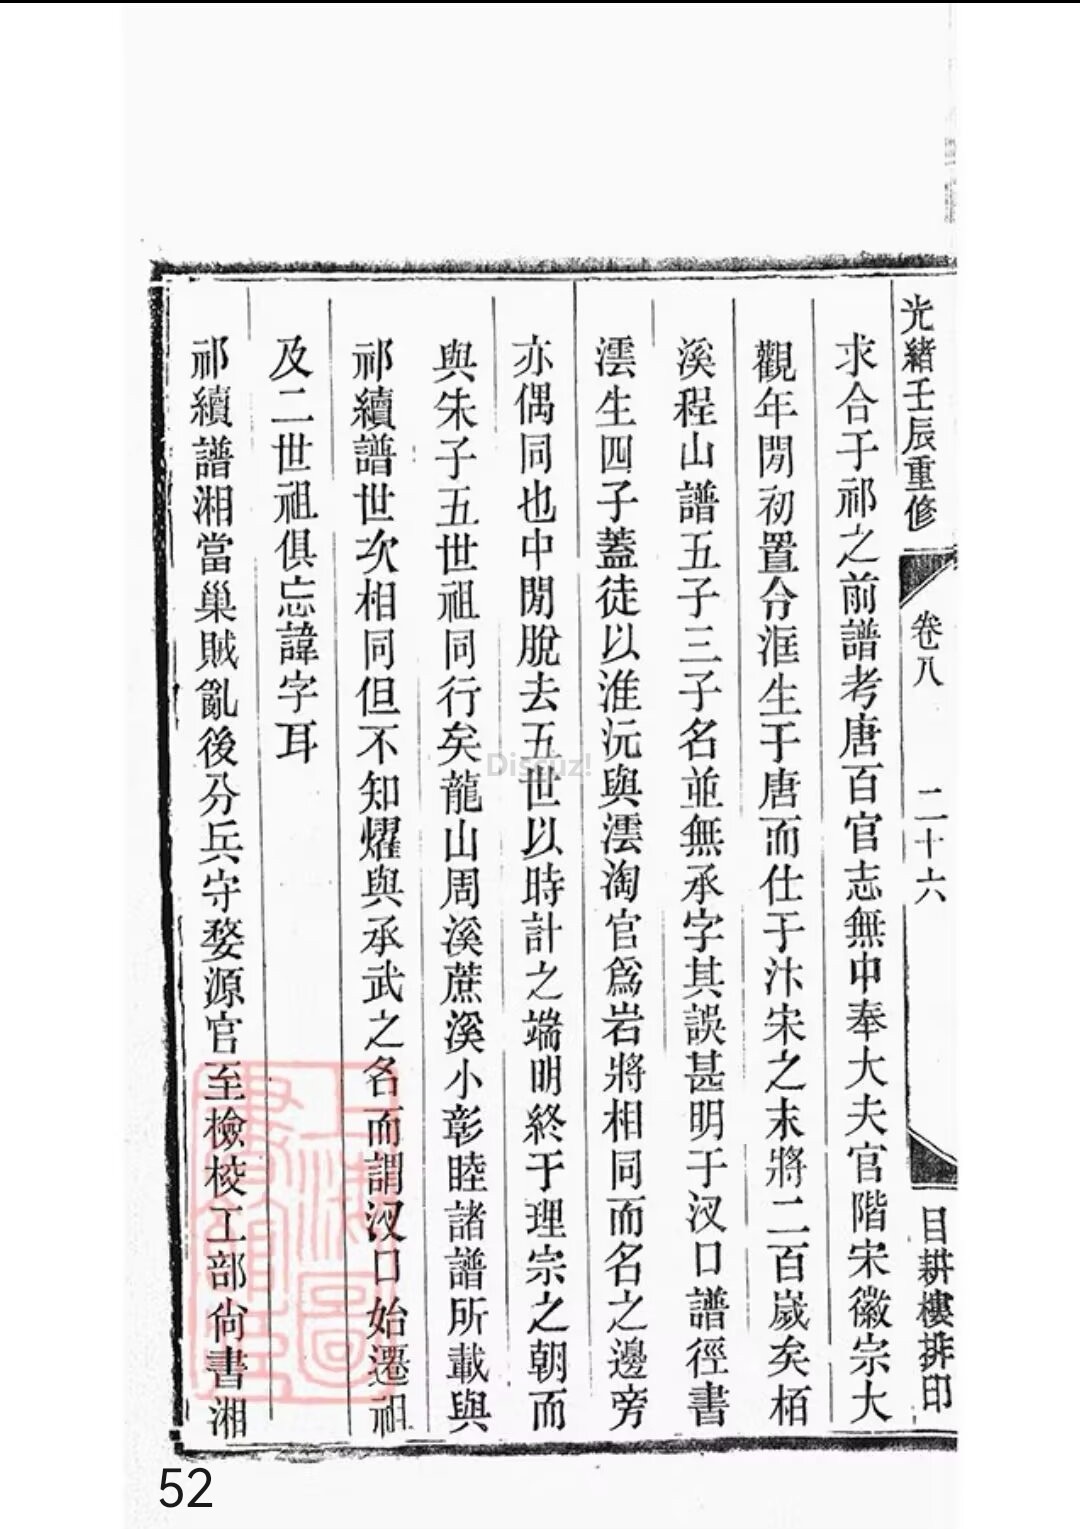 光緒壬辰重修
卷八
二十六
目耕樓排印
求合于祁之前譜考唐百官志無中奉大夫官階宋徽宗大
觀年閒初置令淮生于唐而仕于汴宋之末將二百歲矣栢
溪程山譜五子三子名並無承字其誤甚明于汊口譜徑書
澐生四子蓋徒以淮沅與澐淘官爲岩將相同而名之邊旁
亦偶同也中閒脫去五世以時計之端明終于理宗之朝而
與朱子五世祖同行矣龍山周溪蔗溪小彰睦諸譜所載與
祁續譜世次相同但不知燿與承武之名而謂汊口始遷祖
及二世祖俱忘諱字耳
祁續譜湘當巢賊亂後分兵守婺源官至檢校工部尙書湘
上海圖書館藏
Discuz!
52